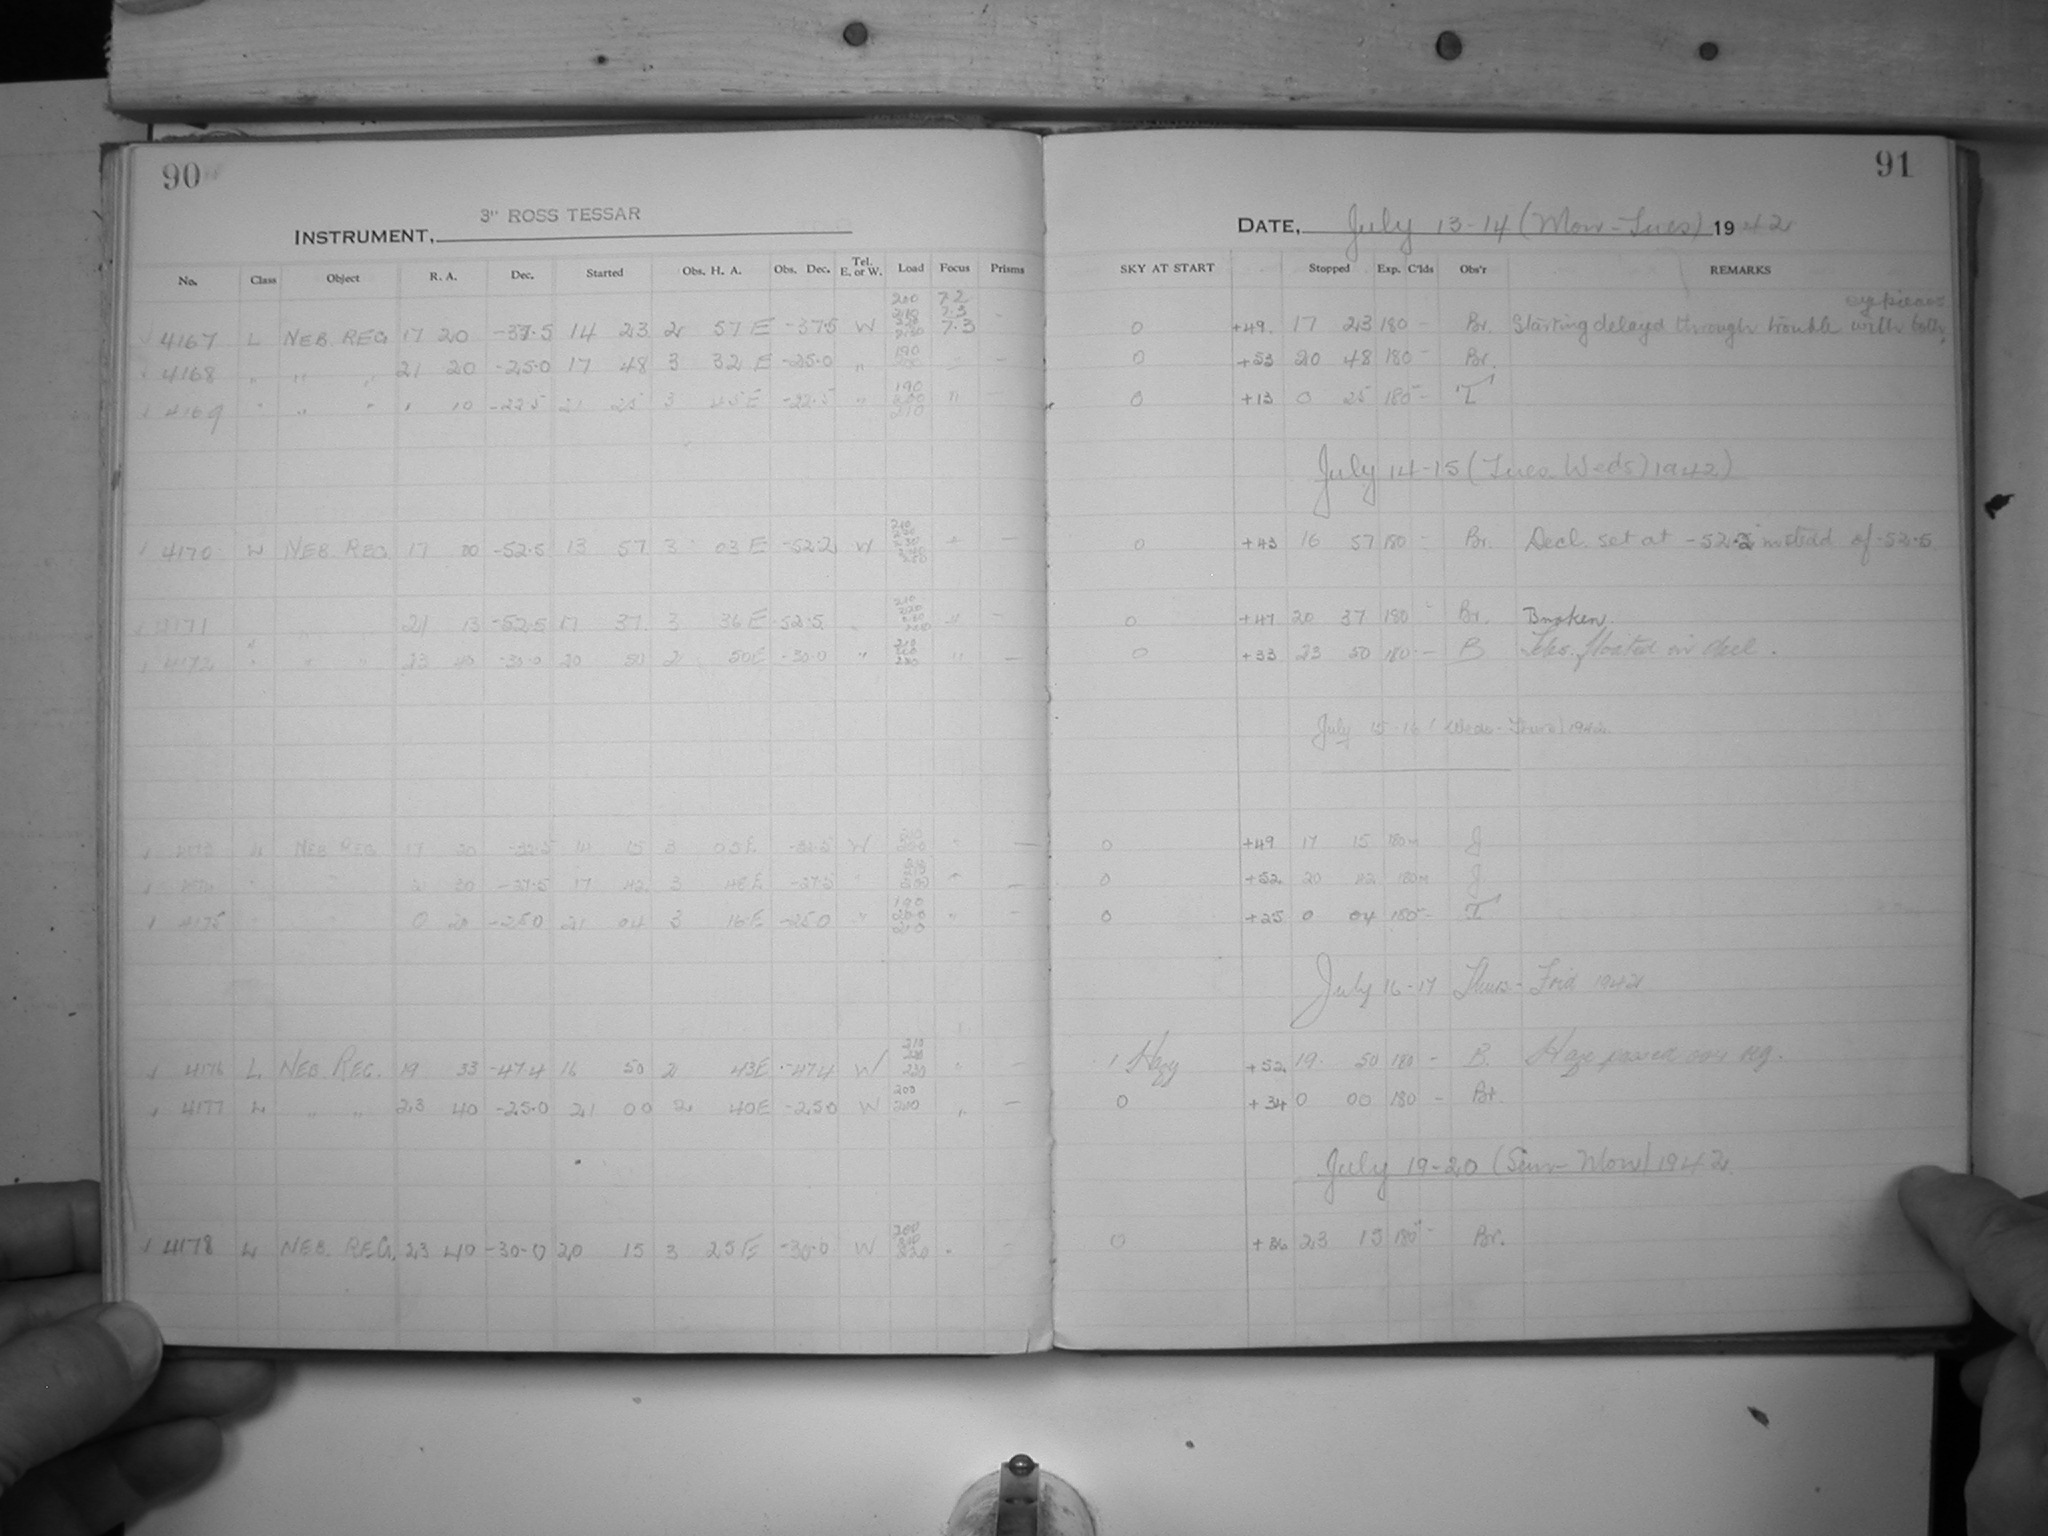 90
91
3" ROSS TESSAR
INSTRUMENT,
DATE, July 13-14 (Mon-Tues) 1942
No. Class Object R. A. Dec. Started Obs. H. A. Obs. Dec. Tel. E. or W. Load Focus Prisms SKY AT START Stopped Exp. C'lds Obs'r REMARKS
4167 L NEB. REG 17 20 -37.5 14 23 2 57 E -37.5 W 200 7.2 7.3 7.3 0 +49 17 23 180 - Br. Starting delayed through trouble with both eyepieces
4168 " " " 21 20 -25.0 17 48 3 32 E -25.0 " 190 - 0 +53 20 48 180 - Br.
4169 " " " " 10 -22.5 21 25 3 45 E -22.5 " 190 200 210 " - 0 +13 0 25 180 - T
July 14-15 (Tues-Weds) 1942)
4170 NEB. REG. 17 00 -52.5 13 57 3 03 E -52.2 W - 0 +43 16 57 180 - Br. Decl. set at -52.2 instead of -52.5
4171 21 13 -52.5 17 37 3 36 E -52.5 " 210 220 " - 0 +47 20 37 180 - Br. Broken.
4172 " " " 23 40 -30.0 20 50 2 50 E -30.0 " 210 " - 0 +33 23 50 180 - B Teles. floated in decl.
July 15-16 (Weds-Thurs) 1942
NEB REG 17 20 14 15 3 03 E W - 0 +49 17 15 180m J
30 -37.5 17 42 3 48 E -37.5 - 0 +52 20 42 180m J
4175 0 20 -25.0 21 04 3 16 E -25.0 " 190 200 210 " - 0 +25 0 04 180 - T
July 16-17 Thurs-Frid 1942
4176 L NEB. REG. 19 33 -47.4 16 50 2 43 E -47.4 W 210 220 " - 1 Hazy +52 19 50 180 - B. Haze passed over reg.
4177 L " " 23 40 -25.0 21 00 2 40 E -25.0 W 200 210 " - 0 +34 0 00 180 - Br.
July 19-20 (Sun-Mon) 1942
4178 L NEB. REG. 23 40 -30.0 20 15 3 25 E -30.0 W 200 210 220 " - 0 +36 23 15 180 - Br.